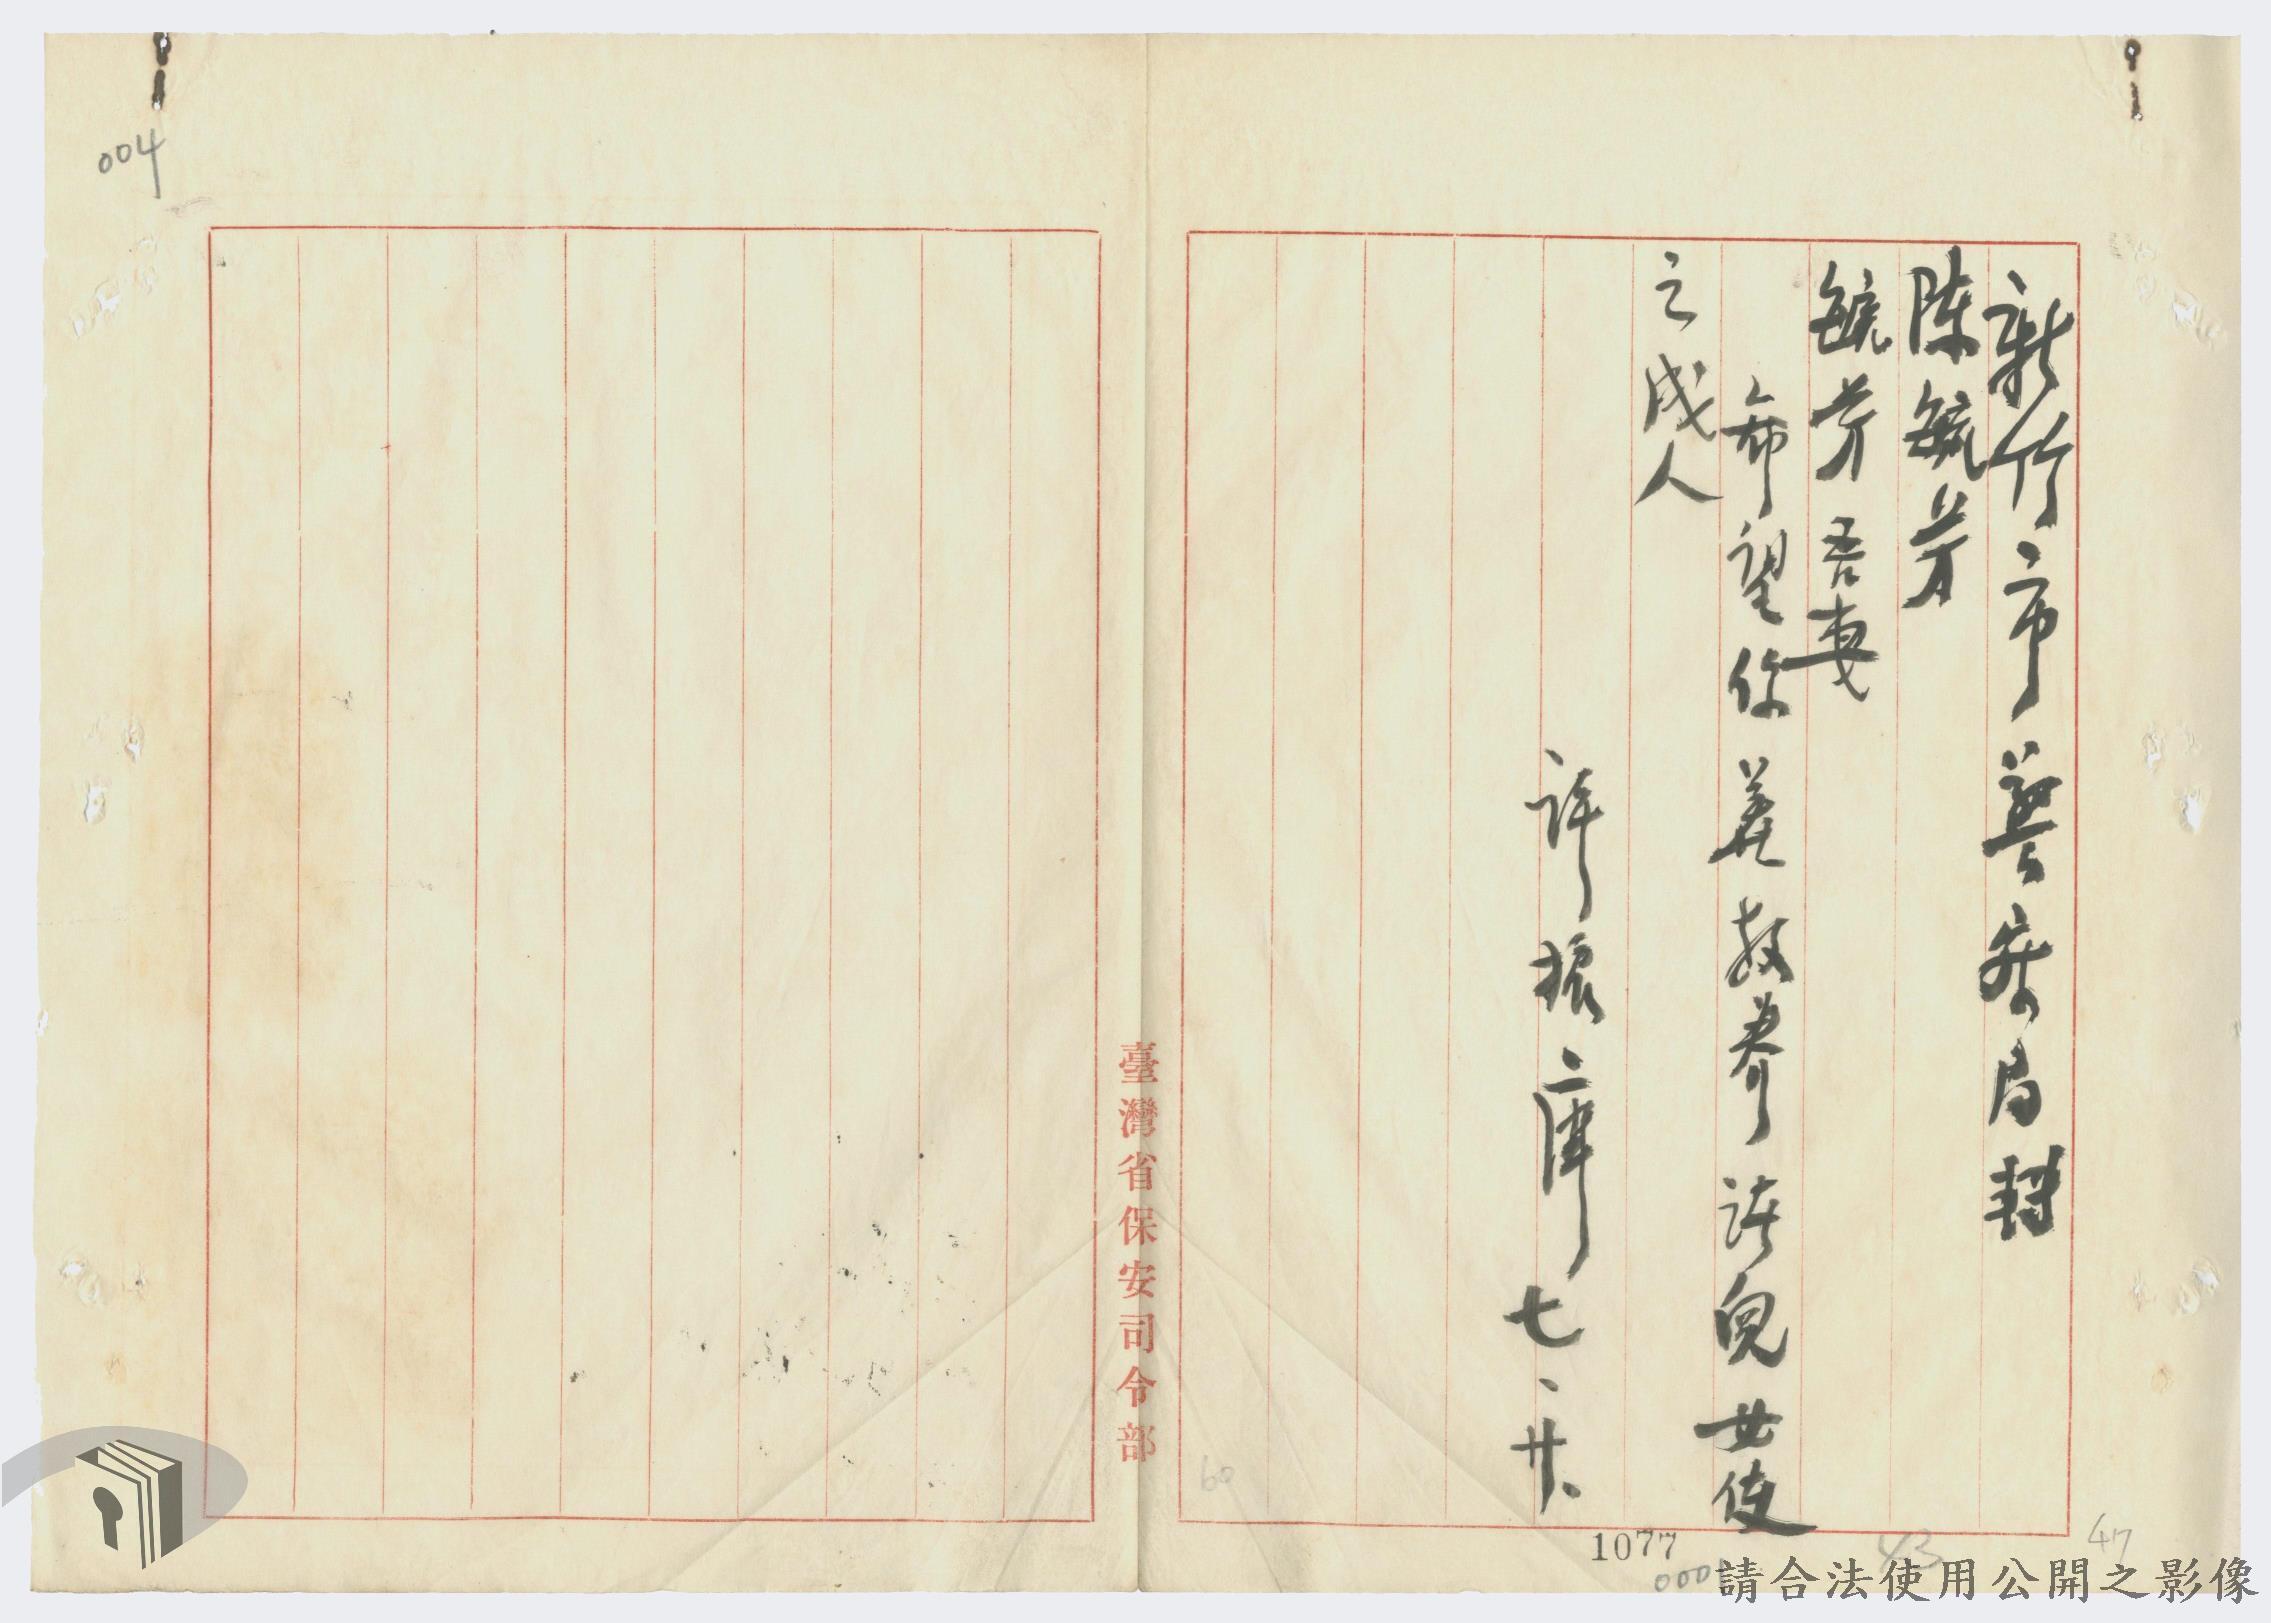 新竹市警察局轉
陳毓芳
毓芳吾妻
希望你善教養諸兒女使
之成人
許振庠七、廿、
臺灣省保安司令部
004
60
1077
000
43
47
請合法使用公開之影像